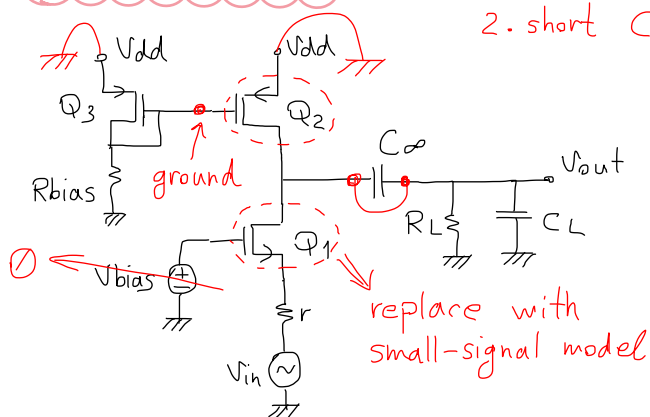 2. short C
Vdd
Vdd
Q3
Q2
C∞
Vout
ground
Rbias
RL
CL
Q1
0
Vbias
r
replace with
small-signal model
Vin